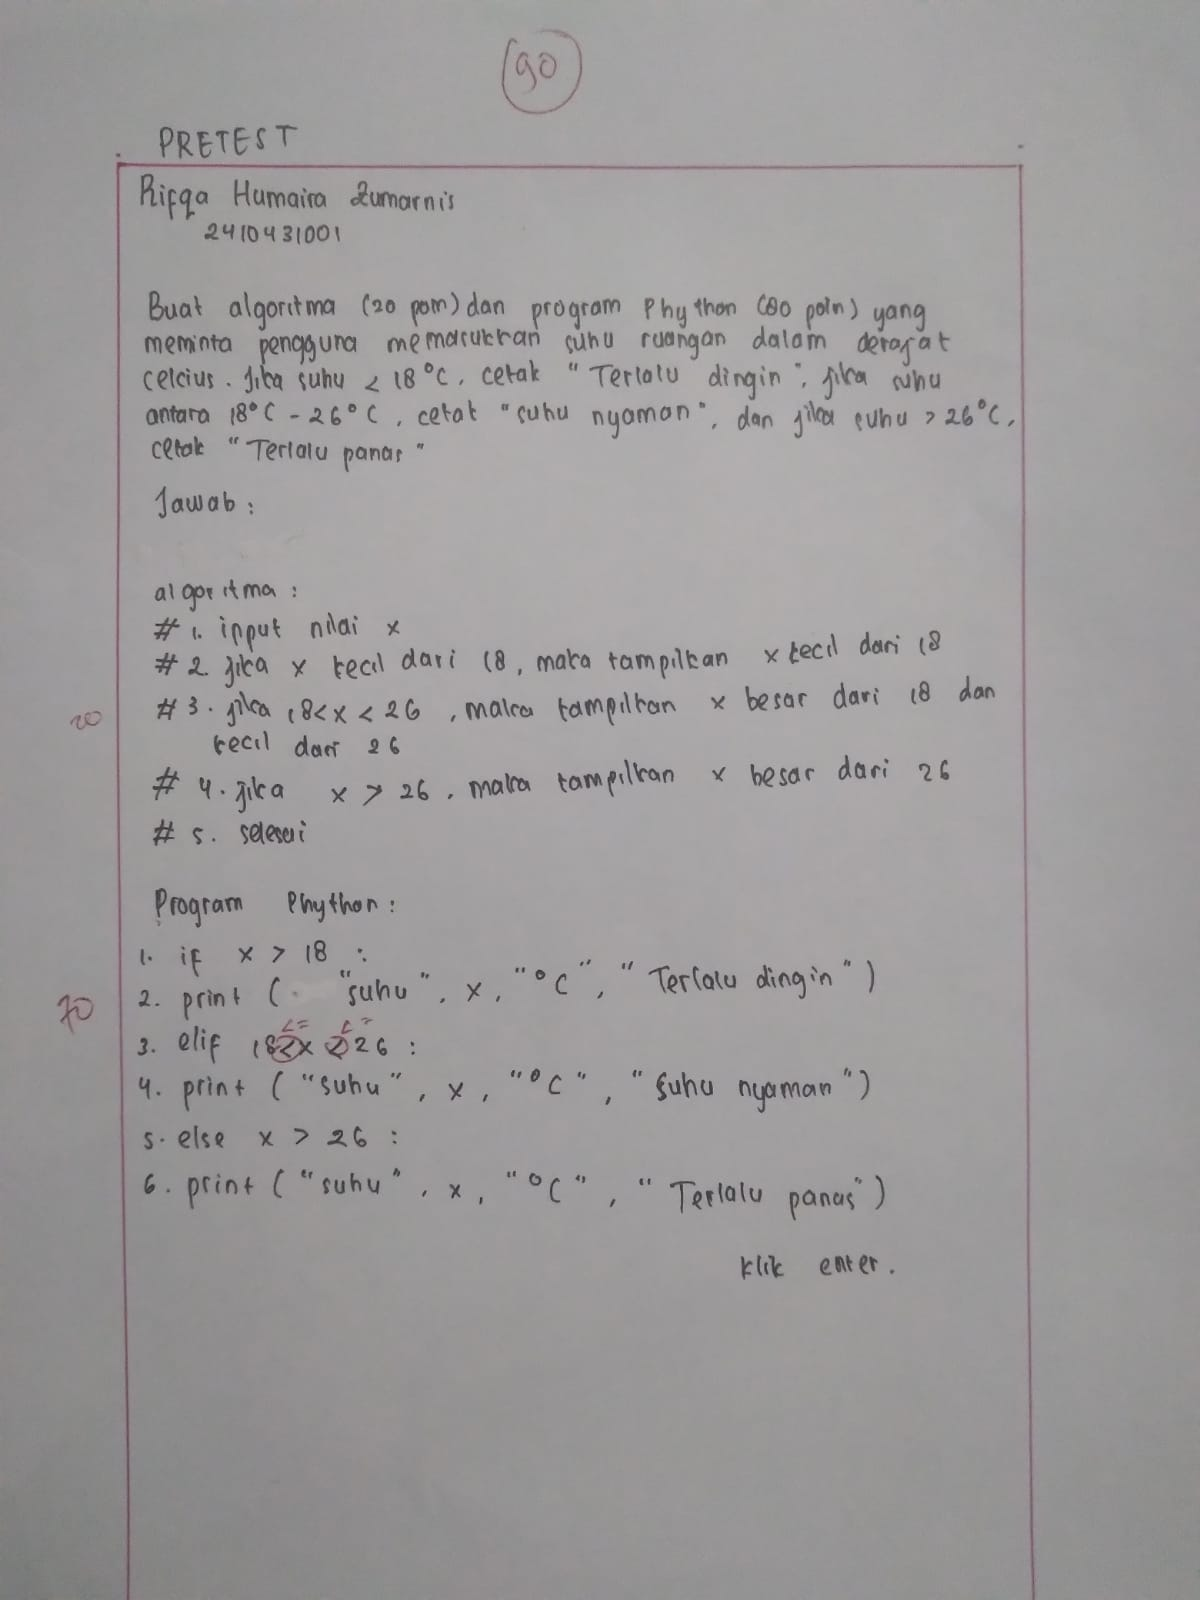 90
PRETEST
Rifqa Humaira Zumarnis
2410431001
Buat algoritma (20 poin) dan program Phython (80 poin) yang
meminta pengguna memasukkan suhu ruangan dalam derajat
celcius. Jika suhu < 18°C, cetak "Terlalu dingin", jika suhu
antara 18°C - 26°C, cetak "suhu nyaman", dan jika suhu > 26°C,
cetak "Terlalu panas"
Jawab :
algoritma :
# 1. input nilai x
# 2. jika x kecil dari 18, maka tampilkan x kecil dari 18
# 3. jika 18 < x < 26, maka tampilkan x besar dari 18 dan
20
kecil dari 26
# 4. jika x > 26, maka tampilkan x besar dari 26
# 5. selesai
Program Phython :
1. if x > 18 :
2. print ( "suhu", x, "°C", "Terlalu dingin")
70
<= <=
3. elif 18 < x < 26 :
4. print ("suhu", x, "°C", "suhu nyaman")
5. else x > 26 :
6. print ("suhu", x, "°C", "Terlalu panas")
klik enter.